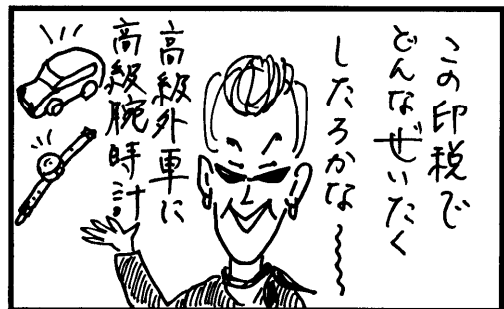 この印税で
どんなぜいたく
したろかな～～
高級外車に
高級腕時計。